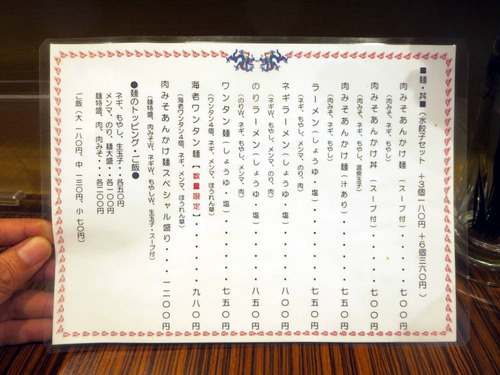 ■麺・丼■（水餃子セット　＋３個一八〇円　＋６個三六〇円）
肉みそあんかけ麺（スープ付）・・・・・七〇〇円
（肉みそ、ネギ、もやし）
肉みそあんかけ丼（スープ付）・・・・・七〇〇円
（肉みそ、ネギ、もやし、温泉玉子）
肉みそあんかけ麺（汁あり）・・・・・七五〇円
（肉みそ、ネギ、もやし）
ラーメン（しょうゆ・塩）・・・・・七五〇円
（ネギ、もやし、メンマ、のり、肉）
ネギラーメン（しょうゆ・塩）・・・・・八〇〇円
（ネギW、もやし、メンマ、のり、肉）
のりラーメン（しょうゆ・塩）・・・・・八五〇円
（のりW、ネギ、もやし、メンマ、肉）
ワンタン麺（しょうゆ・塩）・・・・・七五〇円
（ワンタン4個、ネギ、メンマ、のり、ほうれん草）
海老ワンタン麺【数量限定】・・・・・九八〇円
（海老ワンタン4個、ネギ、メンマ、ほうれん草）
肉みそあんかけ麺スペシャル盛り・・・・一二〇〇円
（麺特盛、肉みそW、ネギW、もやしW、生玉子・スープ付）
●麺のトッピング・ご飯●
ネギ、もやし、生玉子・・各五〇円
メンマ、のり、麺大盛・・各一〇〇円
麺特盛、肉、肉みそ・・・各二〇〇円
ご飯（大　一八〇円、中　一三〇円、小　七〇円）